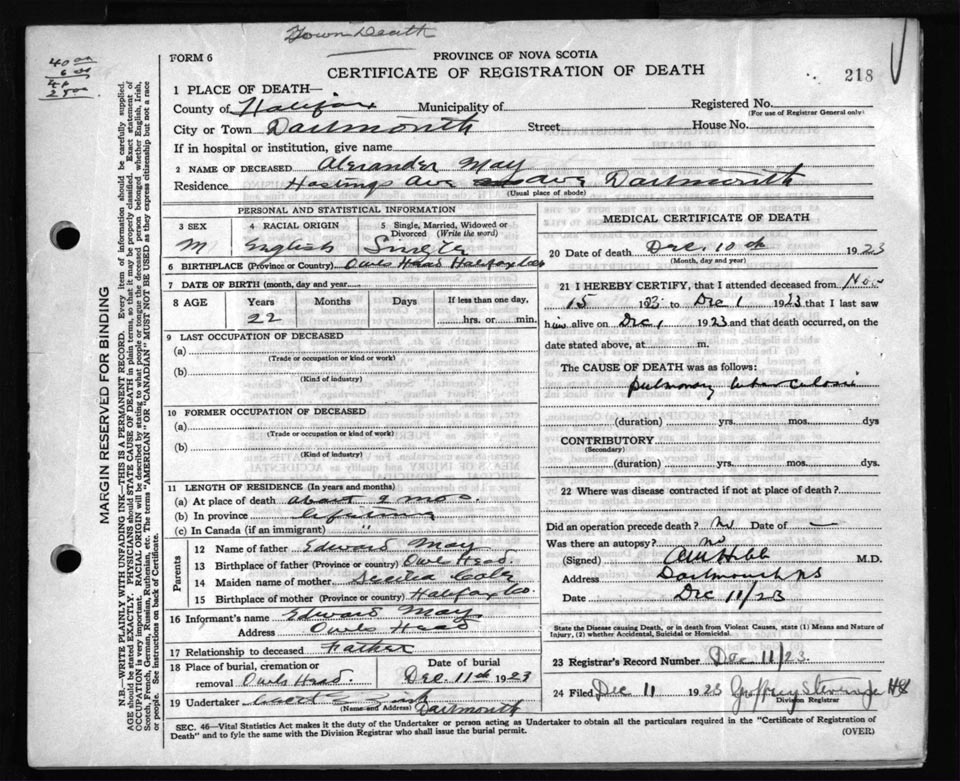 Town Death
40 00
6 00
FORM 6
PROVINCE OF NOVA SCOTIA
CERTIFICATE OF REGISTRATION OF DEATH
218
1 PLACE OF DEATH—
County of Halifax Municipality of Registered No.
(For use of Registrar General only)
City or Town Dartmouth Street House No.
If in hospital or institution, give name
2 NAME OF DECEASED Alexander May
Residence Hastings Ave Ave Dartmouth
(Usual place of abode)
PERSONAL AND STATISTICAL INFORMATION
3 SEX 4 RACIAL ORIGIN 5 Single, Married, Widowed or Divorced (Write the word)
M English Single
6 BIRTHPLACE (Province or Country) Owls Head Halifax Co
7 DATE OF BIRTH (month, day and year)
8 AGE Years Months Days If less than one day,
22 hrs. or min.
9 LAST OCCUPATION OF DECEASED
(a)
(Trade or occupation or kind of work)
(b)
(Kind of industry)
10 FORMER OCCUPATION OF DECEASED
(a)
(Trade or occupation or kind of work)
(b)
(Kind of industry)
11 LENGTH OF RESIDENCE (In years and months)
(a) At place of death about 2 mos.
(b) In province lifetime
(c) In Canada (if an immigrant) "
Parents
12 Name of father Edward May
13 Birthplace of father (Province or country) Owls Head
14 Maiden name of mother
15 Birthplace of mother (Province or country) Halifax Co.
16 Informant's name Edward May
Address Owls Head
17 Relationship to deceased Father
18 Place of burial, cremation or removal Owls Head
Date of burial
Dec. 11th 1923
19 Undertaker Dartmouth
(Name and Address)
MEDICAL CERTIFICATE OF DEATH
20 Date of death Dec. 10th 1923
(Month, day and year)
21 I HEREBY CERTIFY, that I attended deceased from Nov
15 1923 to Dec 1 1923 that I last saw
him alive on Dec 1 1923 and that death occurred, on the
date stated above, at m.
The CAUSE OF DEATH was as follows:
pulmonary tuberculosis
(duration) yrs. mos. dys
CONTRIBUTORY
(Secondary)
(duration) yrs. mos. dys.
22 Where was disease contracted if not at place of death?
Did an operation precede death? No Date of —
Was there an autopsy? no
(Signed) M.D.
Address Dartmouth NS
Date Dec 11/23
State the Disease causing Death, or in death from Violent Causes, state (1) Means and Nature of
Injury, (2) whether Accidental, Suicidal or Homicidal.
23 Registrar's Record Number Dec 11/23.
24 Filed Dec 11 1923
Division Registrar
SEC. 46—Vital Statistics Act makes it the duty of the Undertaker or person acting as Undertaker to obtain all the particulars required in the "Certificate of Registration of
Death" and to fyle the same with the Division Registrar who shall issue the burial permit.
(OVER)
MARGIN RESERVED FOR BINDING
N.B.—WRITE PLAINLY WITH UNFADING INK—THIS IS A PERMANENT RECORD. Every item of information should be carefully supplied.
AGE should be stated EXACTLY. PHYSICIANS should STATE CAUSE OF DEATH in plain terms, so that it may be properly classified. Exact statement of
OCCUPATION is very important. RACIAL ORIGIN will be described by stating to what people or tongue the deceased person belonged whether English, Irish,
Scotch, French, German, Russian, Ruthenian, etc. The terms "AMERICAN" OR "CANADIAN" MUST NOT BE USED as they express citizenship but not a race
or people. See instructions on back of Certificate.